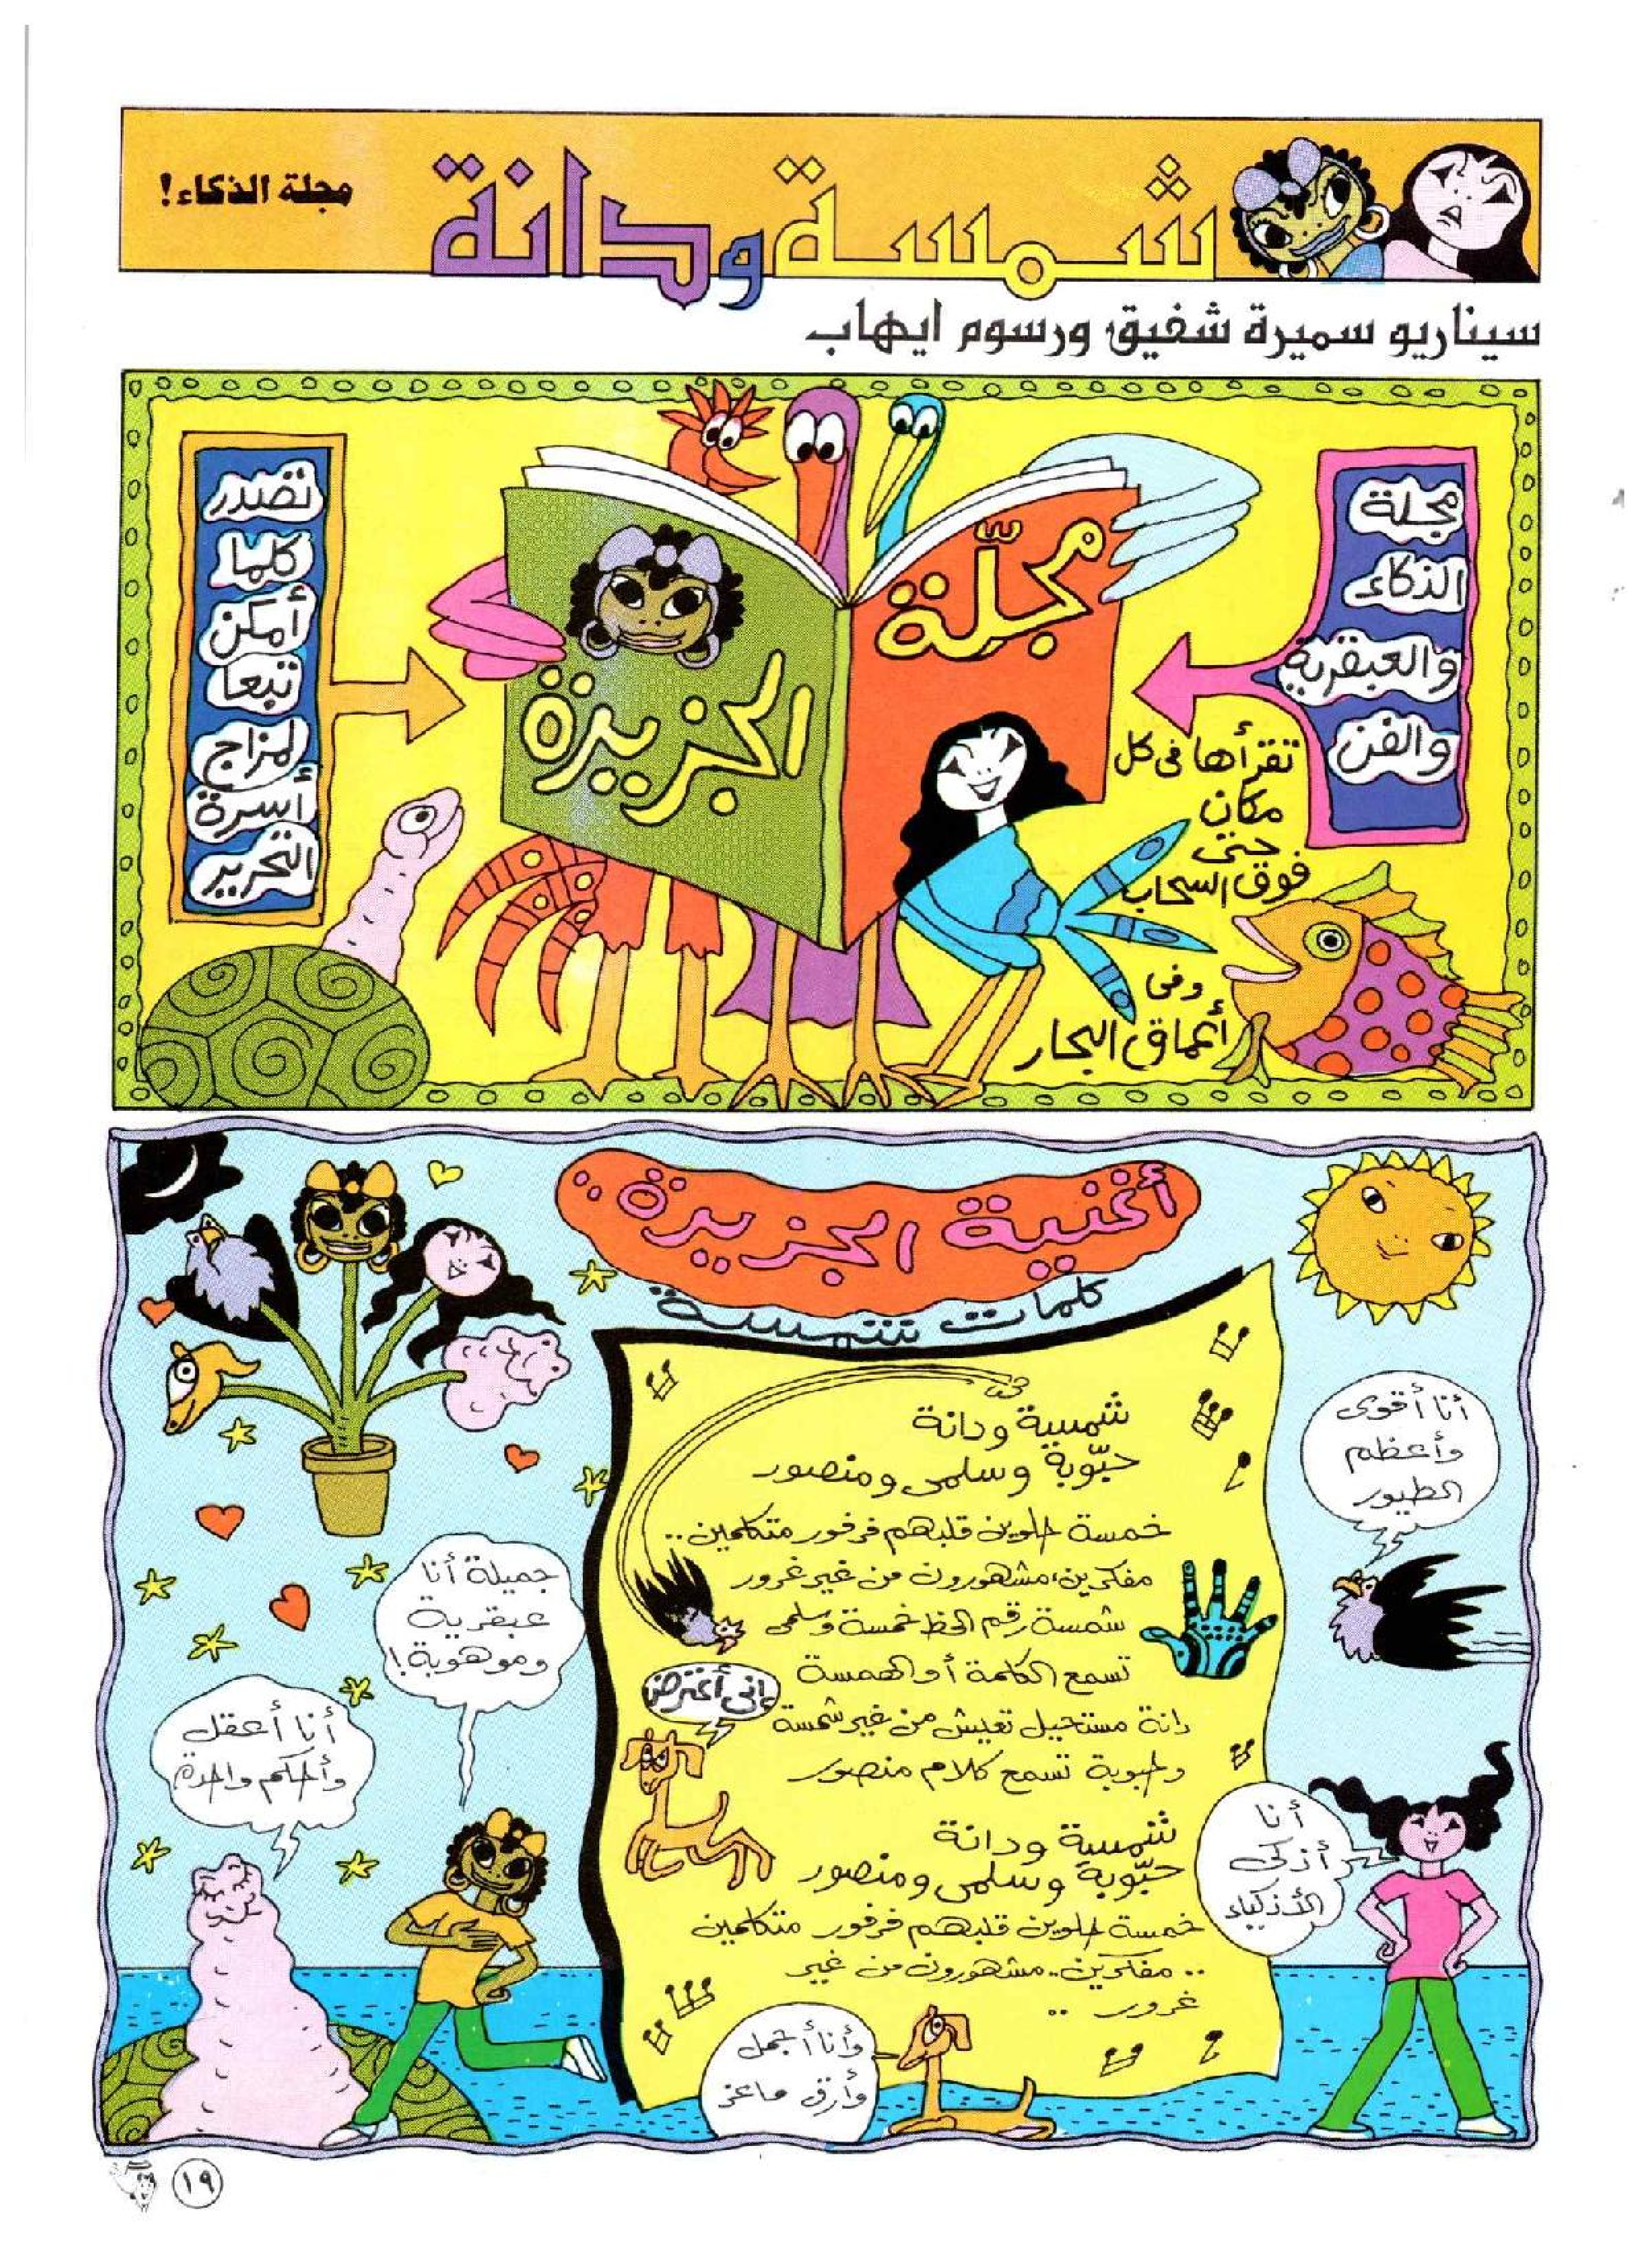 شمسة ودانة
مجلة الذكاء!
سيناريو سميرة شفيق ورسوم ايهاب
مجلة
الذكاء
والعبقرية
والفن
مجلّة
الجزيرة
تصدر
كلما
أمكن
تبعا
لمزاج
أسرة
التحرير
تقرأها فى كل
مكان
حتى
فوق السحاب
وفى
أعماق البحار
أغنية الجزيرة ..
كلمات شمسة
شمسة ودانة
حبّوبة وسلمى ومنصور
خمسة حلوين قلبهم فرفور متكلمين ..
مفكرين، مشهورون من غير غرور
شمسة رقم الحظ خمسة وسلمى
تسمع الكلمة أو الهمسة
دانة مستحيل تعيش من غير شمسة
وحبوبة تسمع كلام منصور
شمسة ودانة
حبّوبة وسلمى ومنصور
خمسة حلوين قلبهم فرفور متكلمين
.. مفكرين .. مشهورون من غير
غرور ..
أنا أقوى
وأعظم
الطيور
إنى أعترض
جميلة أنا
عبقرية
وموهوبة!
أنا أعقل
وأحكم واحدة
أنا
أذكى
الأذكياء
وأنا أجمل
وأرق ماعز
١٩